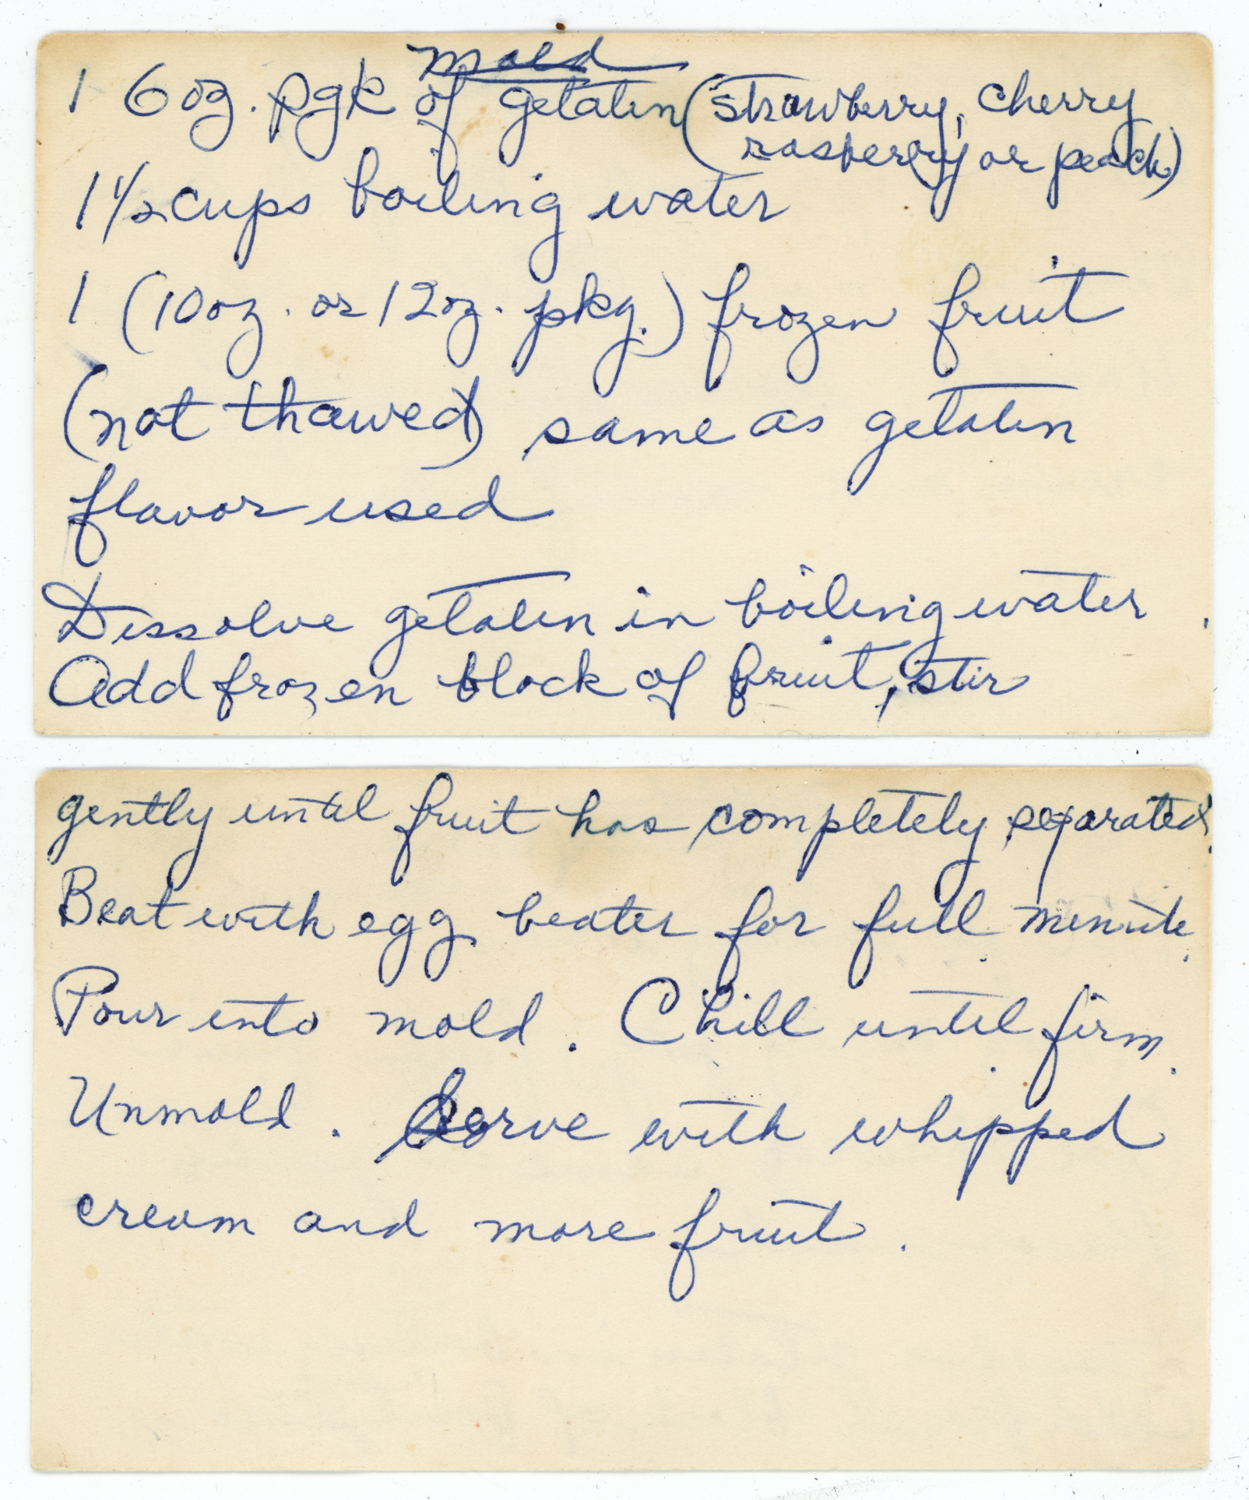 mold
1 6 oz. pgk of gelatin (strawberry, cherry
rasberry or peach)
1 1/2 cups boiling water
1 (10 oz. or 12 oz. pkg.) frozen fruit
(not thawed) same as gelatin
flavor used
Dissolve gelatin in boiling water.
Add frozen block of fruit, stir
gently until fruit has completely separated.
Beat with egg beater for full minute.
Pour into mold. Chill until firm.
Unmold. Serve with whipped
cream and more fruit.